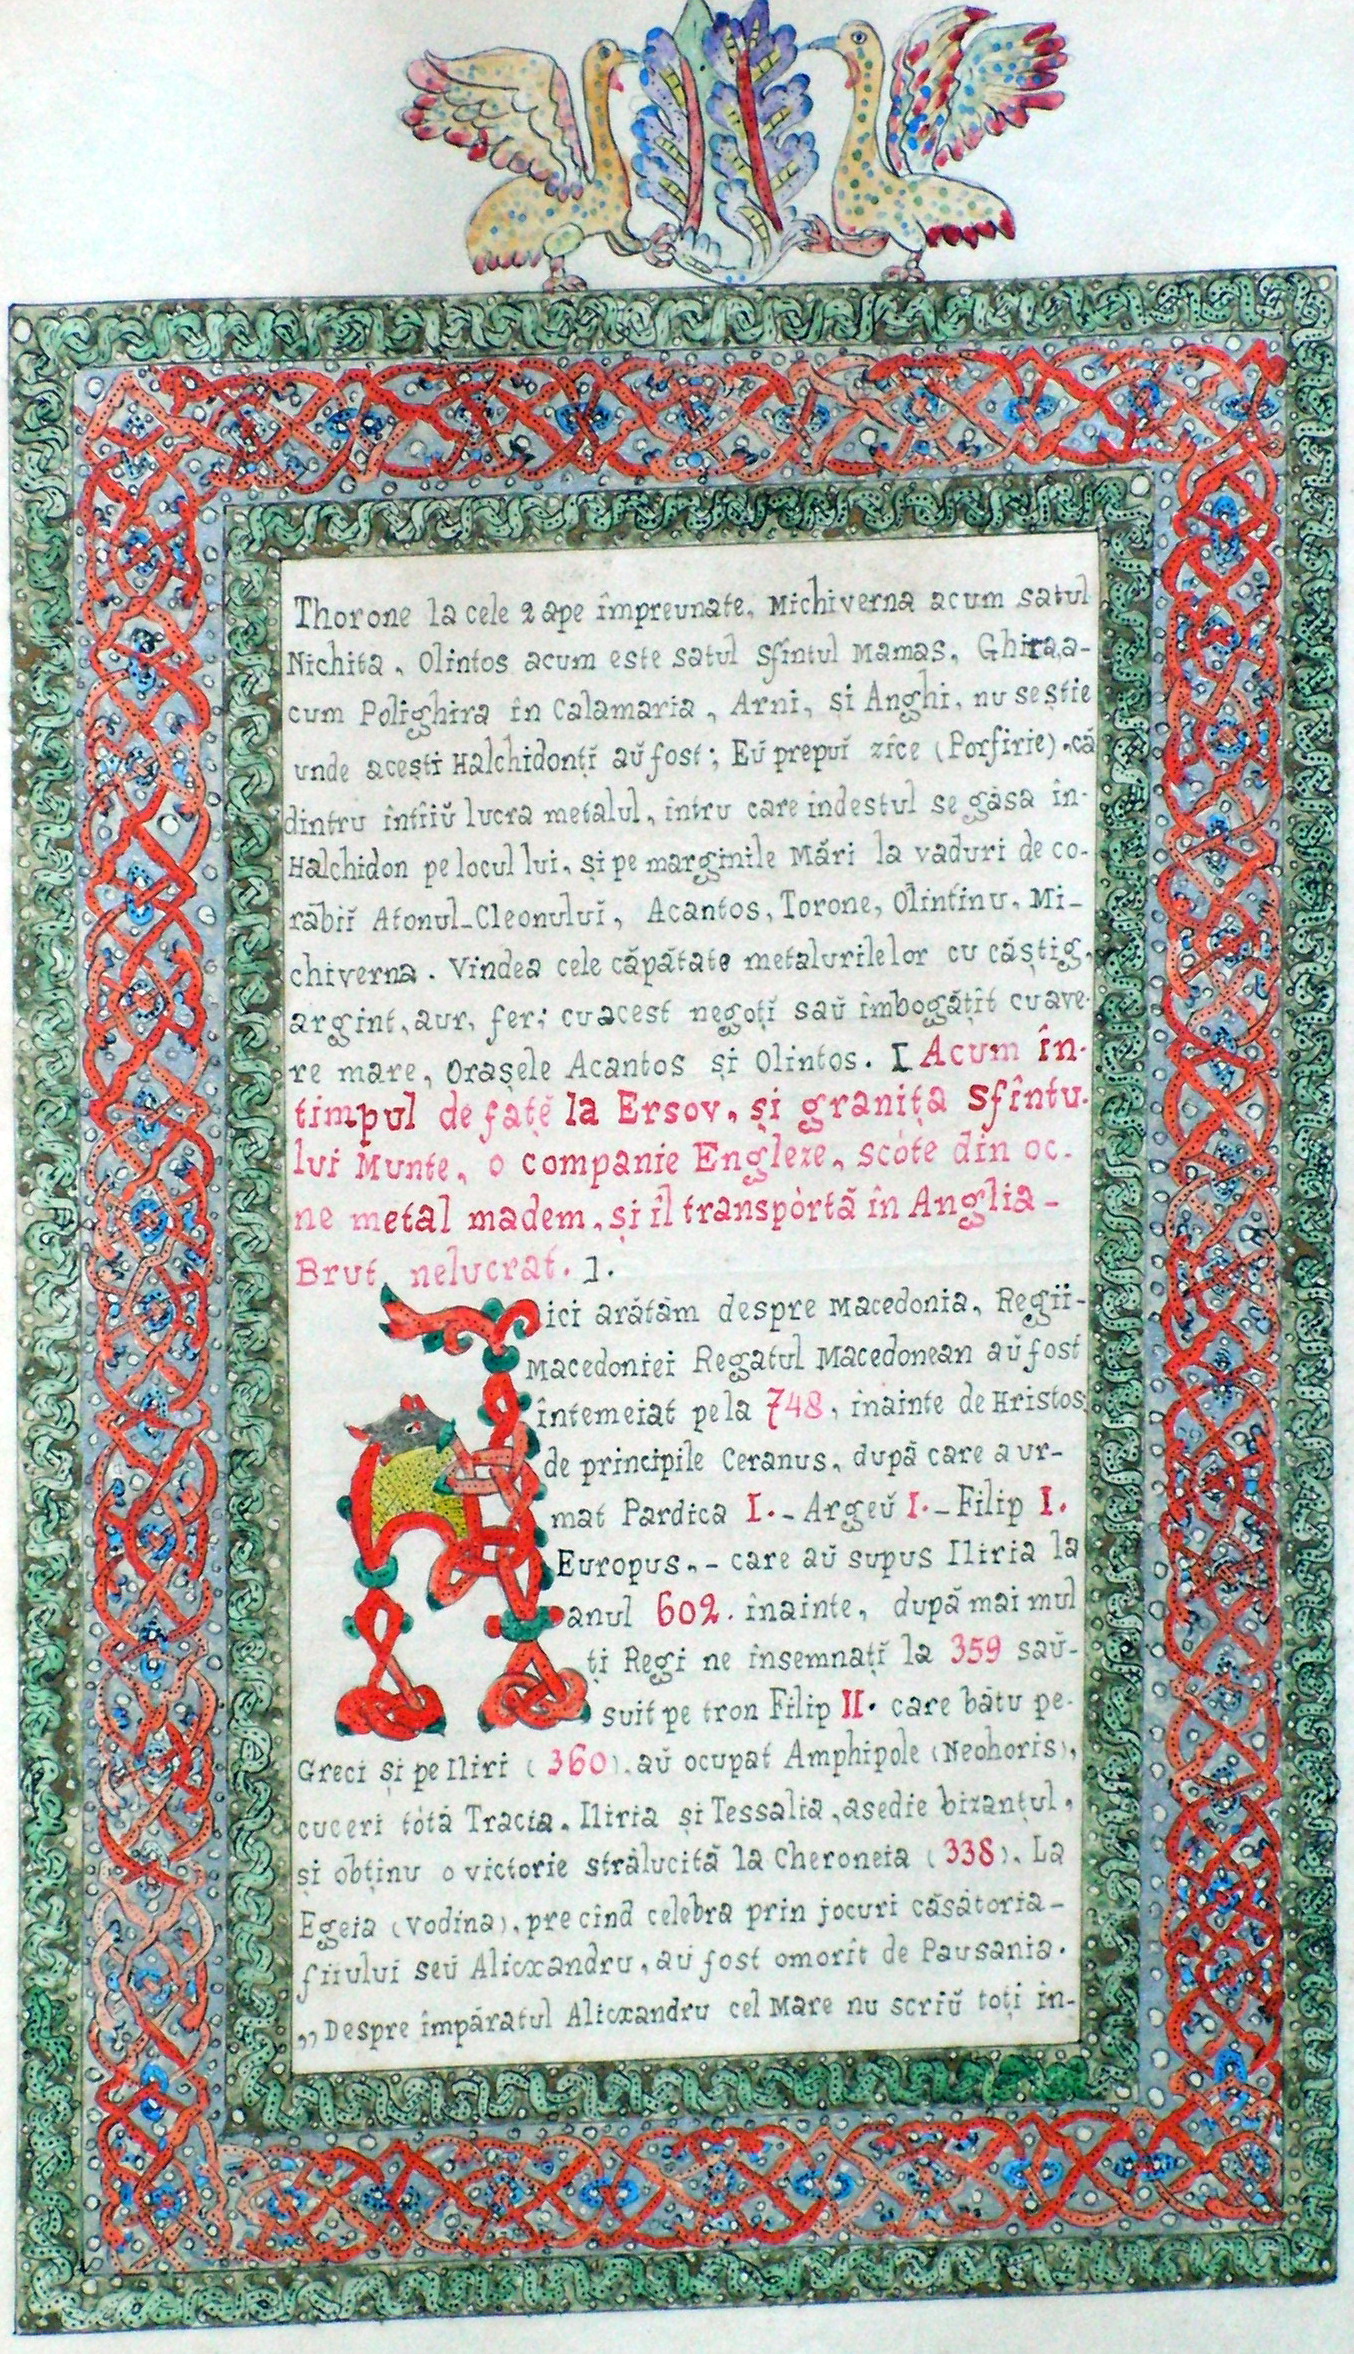 Thorone la cele 2 ape împreunate, Michiverna acum satul
Nichita, Olintos acum este satul sfîntul Mamas, Ghira, a-
cum Polighira în Calamaria, Arni, și Anghi, nu se știe
unde acești Halchidonți aŭ fost; Eŭ prepuĭ zîce (Porfirie), că
dintru întîiŭ lucra metalul, întru care îndestul se găsa în-
Halchidon pe locul lui, și pe marginile Mări la vaduri de co-
răbiĭ Atonul-Cleonuluĭ, Acantos, Torone, Olintinu, Mi-
chiverna. Vindea cele căpătate metalurilelor cu căștig,
argint, aur, fer; cu acest negoțĭ saŭ îmbogățit cu ave-
re mare, Orașele Acantos și Olintos. [Acum în-
timpul de fațĕ la Ersov, și granița sfîntu-
lui Munte, o companie Engleze, scòte din oc-
ne metal madem, și îl transpòrtă în Anglia-
Brut, nelucrat.].
Aici arătăm despre Macedonia, Regii-
Macedoniei Regatul Macedonean aŭ fost
întemeiat pe la 748, înainte de Hristos,
de principile Ceranus, după care a ur-
mat Pardica I.- Argeŭ I.- Filip I.
Europus,- care aŭ supus Iliria la
anul 602. înainte, după mai mul
ți Regi ne însemnațĭ la 359 saŭ-
suit pe tron Filip II. care bătu pe-
Greci și pe Iliri (360), aŭ ocupat Amphipole (Neohoris),
cuceri tòtă Tracia, Iliria și Tessalia, asedie bizanțul,
și obținu o victorie strălucită la Cheroneia (338). La
Egeia (Vodina), pre cînd celebra prin jocuri căsătoria-
fiiului seŭ Alicxandru, aŭ fost omorît de Pausania.
„Despre împăratul Alicxandru cel Mare nu scriŭ toți în-